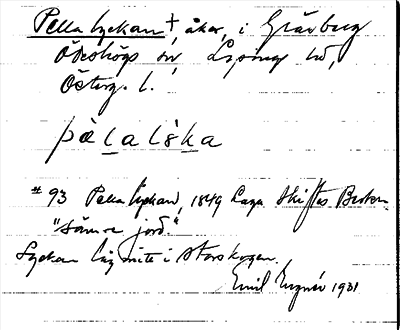 Pella lyckan †, åker, i Gråberg
Ödeshögs sn, Lysings hd,
Österg. l.
pälaliska
# 93 Pella lyckan, 1849 Laga Skiftes Beskr.
"Sämre jord."
Lyckan låg mitt i storskogen.
Emil 1931